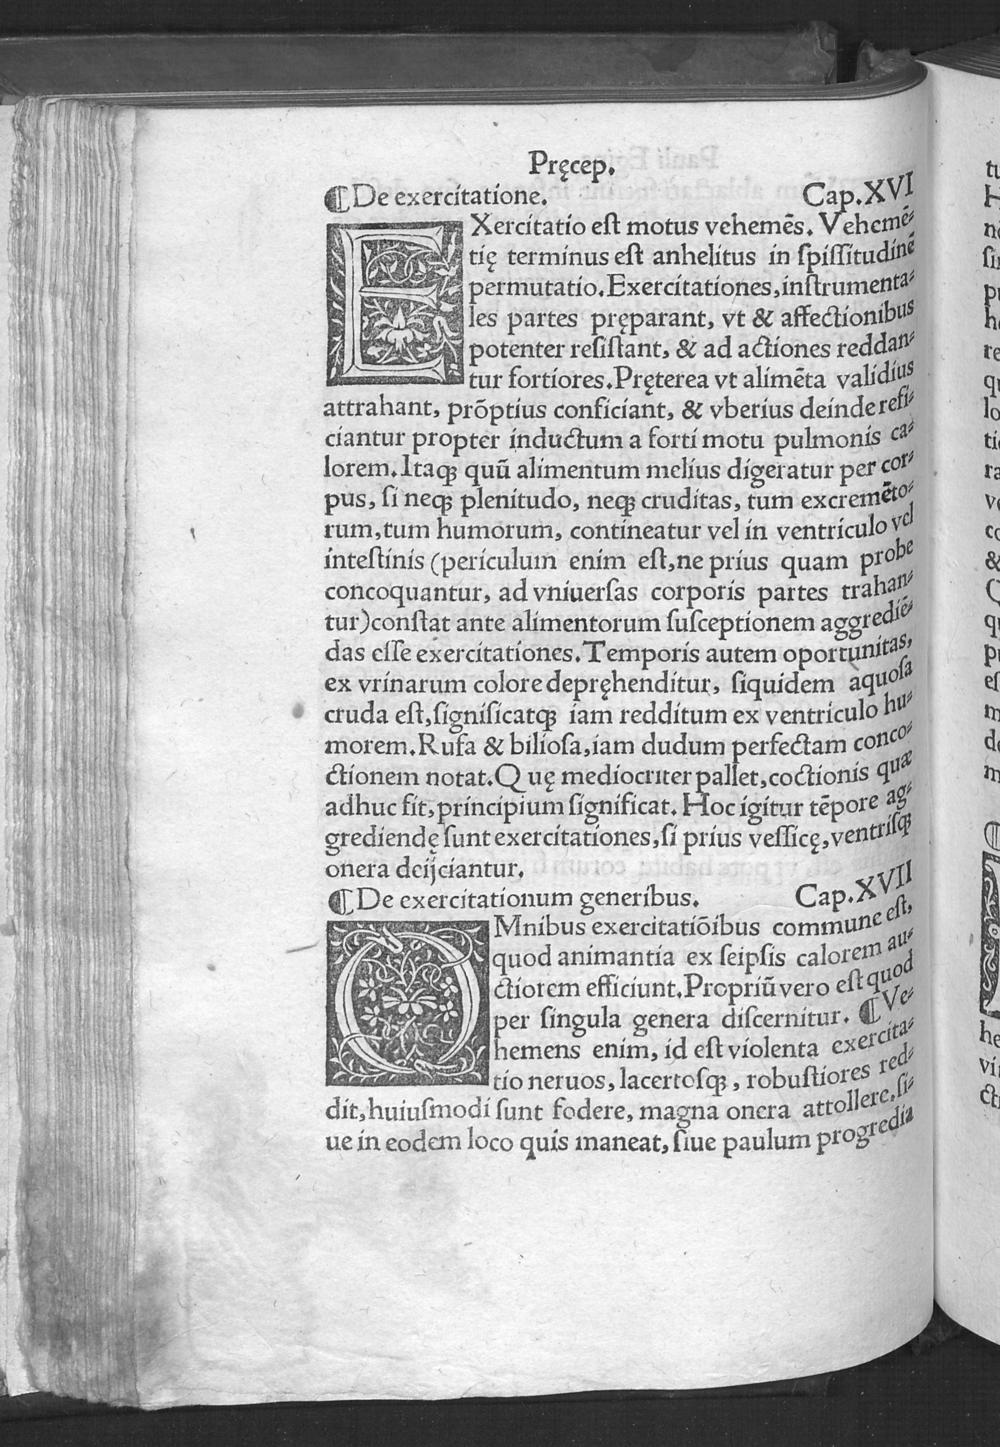 Pręcep.
¶De exercitatione. Cap.XVI
EXercitatio eſt motus vehemēs. Vehemē⸗
tię terminus eſt anhelitus in ſpiſſitudinē
permutatio. Exercitationes, inſtrumenta⸗
les partes pręparant, vt & affectionibus
potenter reſiſtant, & ad actiones reddan⸗
tur fortiores. Pręterea vt alimēta validius
attrahant, prōptius conficiant, & vberius deinde refi⸗
ciantur propter inductum a forti motu pulmonis ca⸗
lorem. Itaqꝫ quū alimentum melius digeratur per cor⸗
pus, ſi neqꝫ plenitudo, neqꝫ cruditas, tum excremēto⸗
rum, tum humorum, contineatur vel in ventriculo vel
inteſtinis (periculum enim eſt, ne prius quam probe
concoquantur, ad vniuerſas corporis partes trahan⸗
tur) conſtat ante alimentorum ſuſceptionem aggrediē⸗
das eſſe exercitationes. Temporis autem oportunitas,
ex vrinarum colore depręhenditur, ſiquidem aquoſa
cruda eſt, ſignificatqꝫ iam redditum ex ventriculo hu⸗
morem. Rufa & bilioſa, iam dudum perfectam conco⸗
ctionem notat. Quę mediocriter pallet, coctionis quæ
adhuc fit, principium ſignificat. Hoc igitur tēpore ag⸗
grediendę ſunt exercitationes, ſi prius veſſicę, ventriſqꝫ
onera deijciantur.
¶De exercitationum generibus. Cap.XVII
OMnibus exercitatiōibus commune eſt,
quod animantia ex ſeipſis calorem au⸗
ctiorem efficiunt. Propriū vero eſt quod
per ſingula genera diſcernitur. ¶Ve⸗
hemens enim, id eſt violenta exercita⸗
tio neruos, lacertoſqꝫ, robuſtiores red⸗
dit, huiuſmodi ſunt fodere, magna onera attollere, ſi⸗
ue in eodem loco quis maneat, ſiue paulum progredia